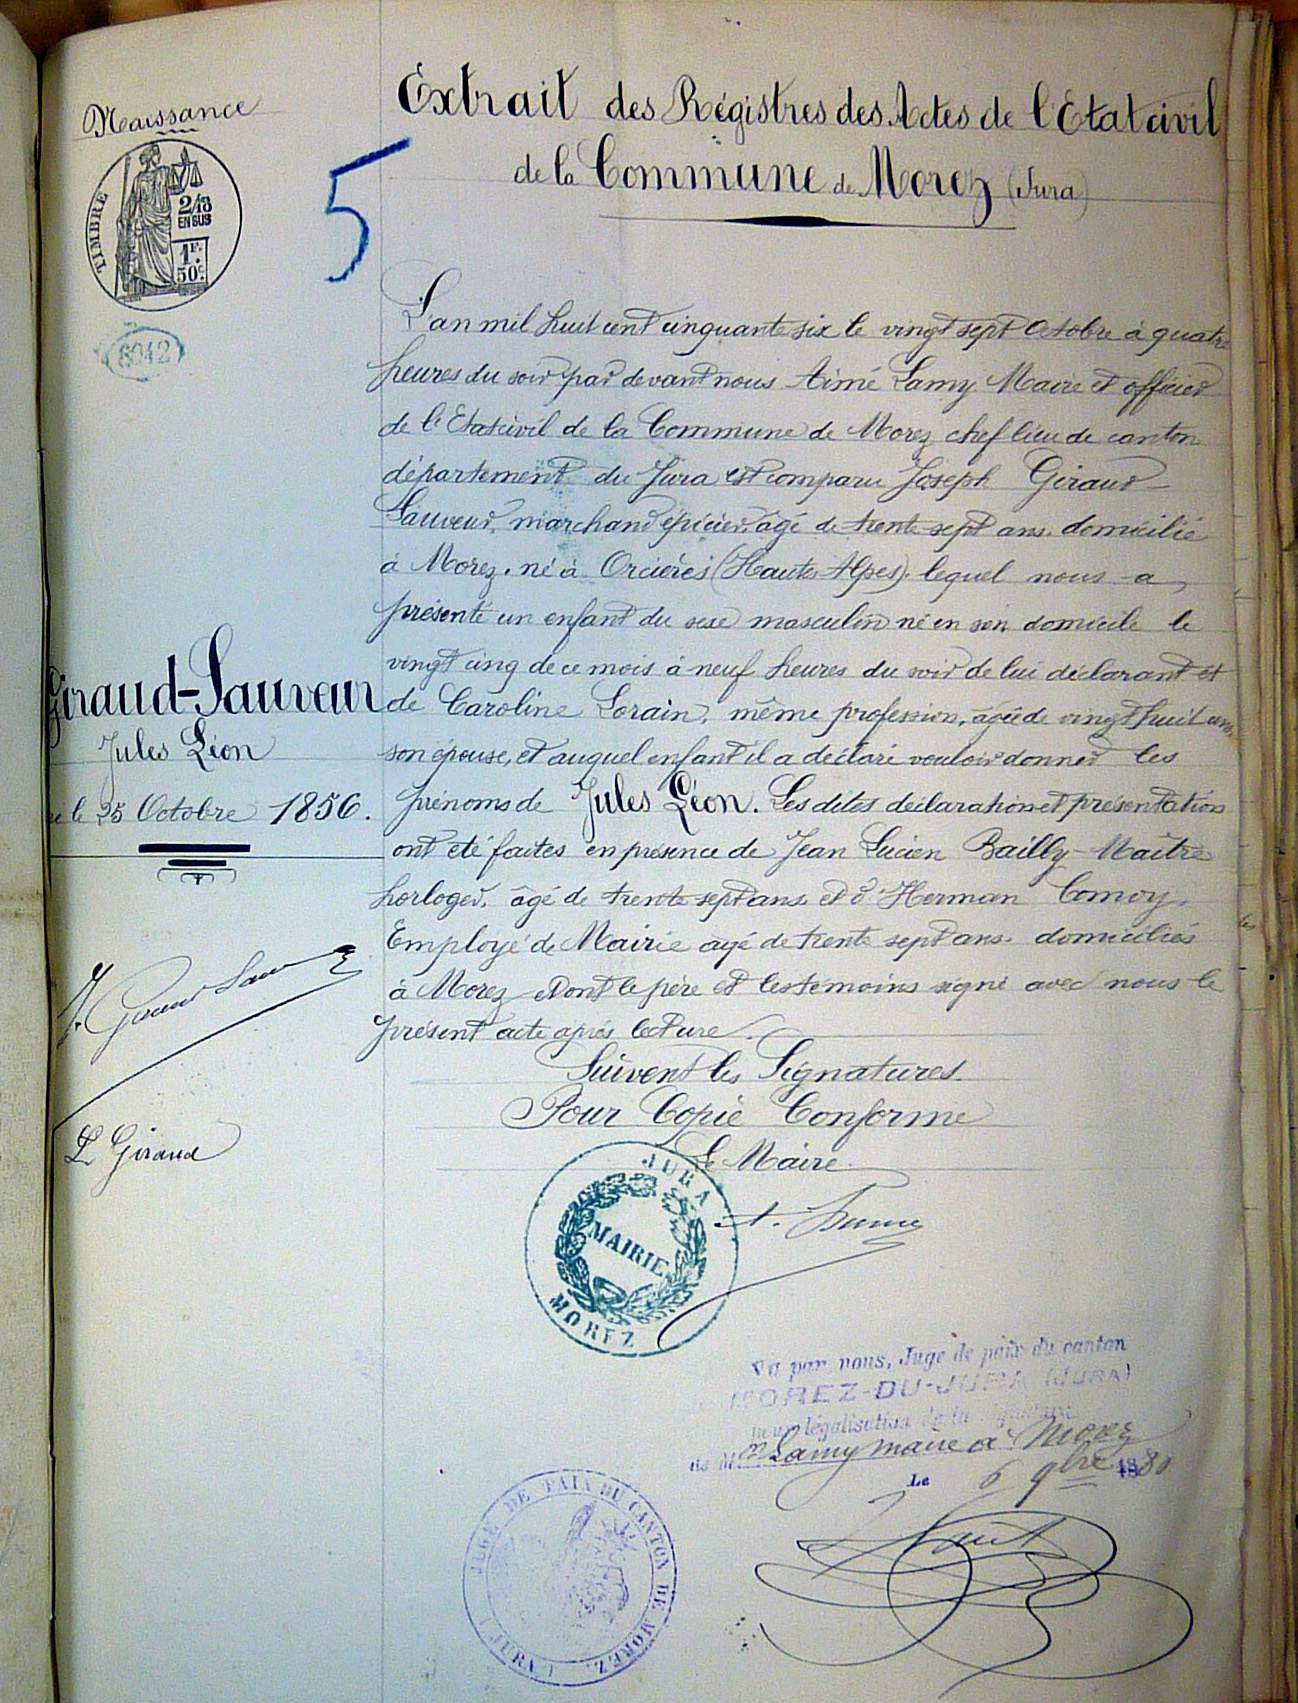 Naissance
TIMBRE
2/10
EN SUS
1F.
50c.
8042
5
Extrait des Régistres des Actes de l'Etat civil
de la Commune de Morez (Jura)
L'an mil huit cent cinquante six le vingt sept Octobre à quatre
heures du soir par devant nous Aimé Lamy Maire et officier
de l'Etat civil de la Commune de Morez chef lieu de canton
département du Jura est comparu Joseph Giraud
Sauveur, marchand épicier, âgé de trente sept ans. domicilié
à Morez. né à Orcières (Hautes Alpes). lequel nous a
présenté un enfant du sexe masculin né en son domicile le
vingt cinq de ce mois à neuf heures du soir de lui déclarant et
de Caroline Lorain, même profession, âgée de vingt huit ans,
son épouse, et auquel enfant il a déclaré vouloir donner les
prénoms de Jules Léon. Les dites déclaration et présentation
ont été faites en présence de Jean Lucien Bailly-Maître
horloger, âgé de trente sept ans et d'Herman Comoy,
Employé de Mairie âgé de trente sept ans. domiciliés
à Morez. Et ont le père et les témoins signé avec nous le
présent acte après lecture.
Suivent les Signatures.
Pour Copie Conforme
Le Maire.
Giraud-Sauveur
Jules Léon
né le 25 Octobre 1856.
J. Giraud Sauveur
L Giraud
JURA
MAIRIE
MOREZ
A. Lamy
Vu par nous, Juge de paix du canton
MOREZ-DU-JURA (JURA)
pour légalisation de la signature
de M. Lamy maire à Morez
Le 6 9bre 1880
JUGE DE PAIX DU CANTON DE MOREZ. (JURA)